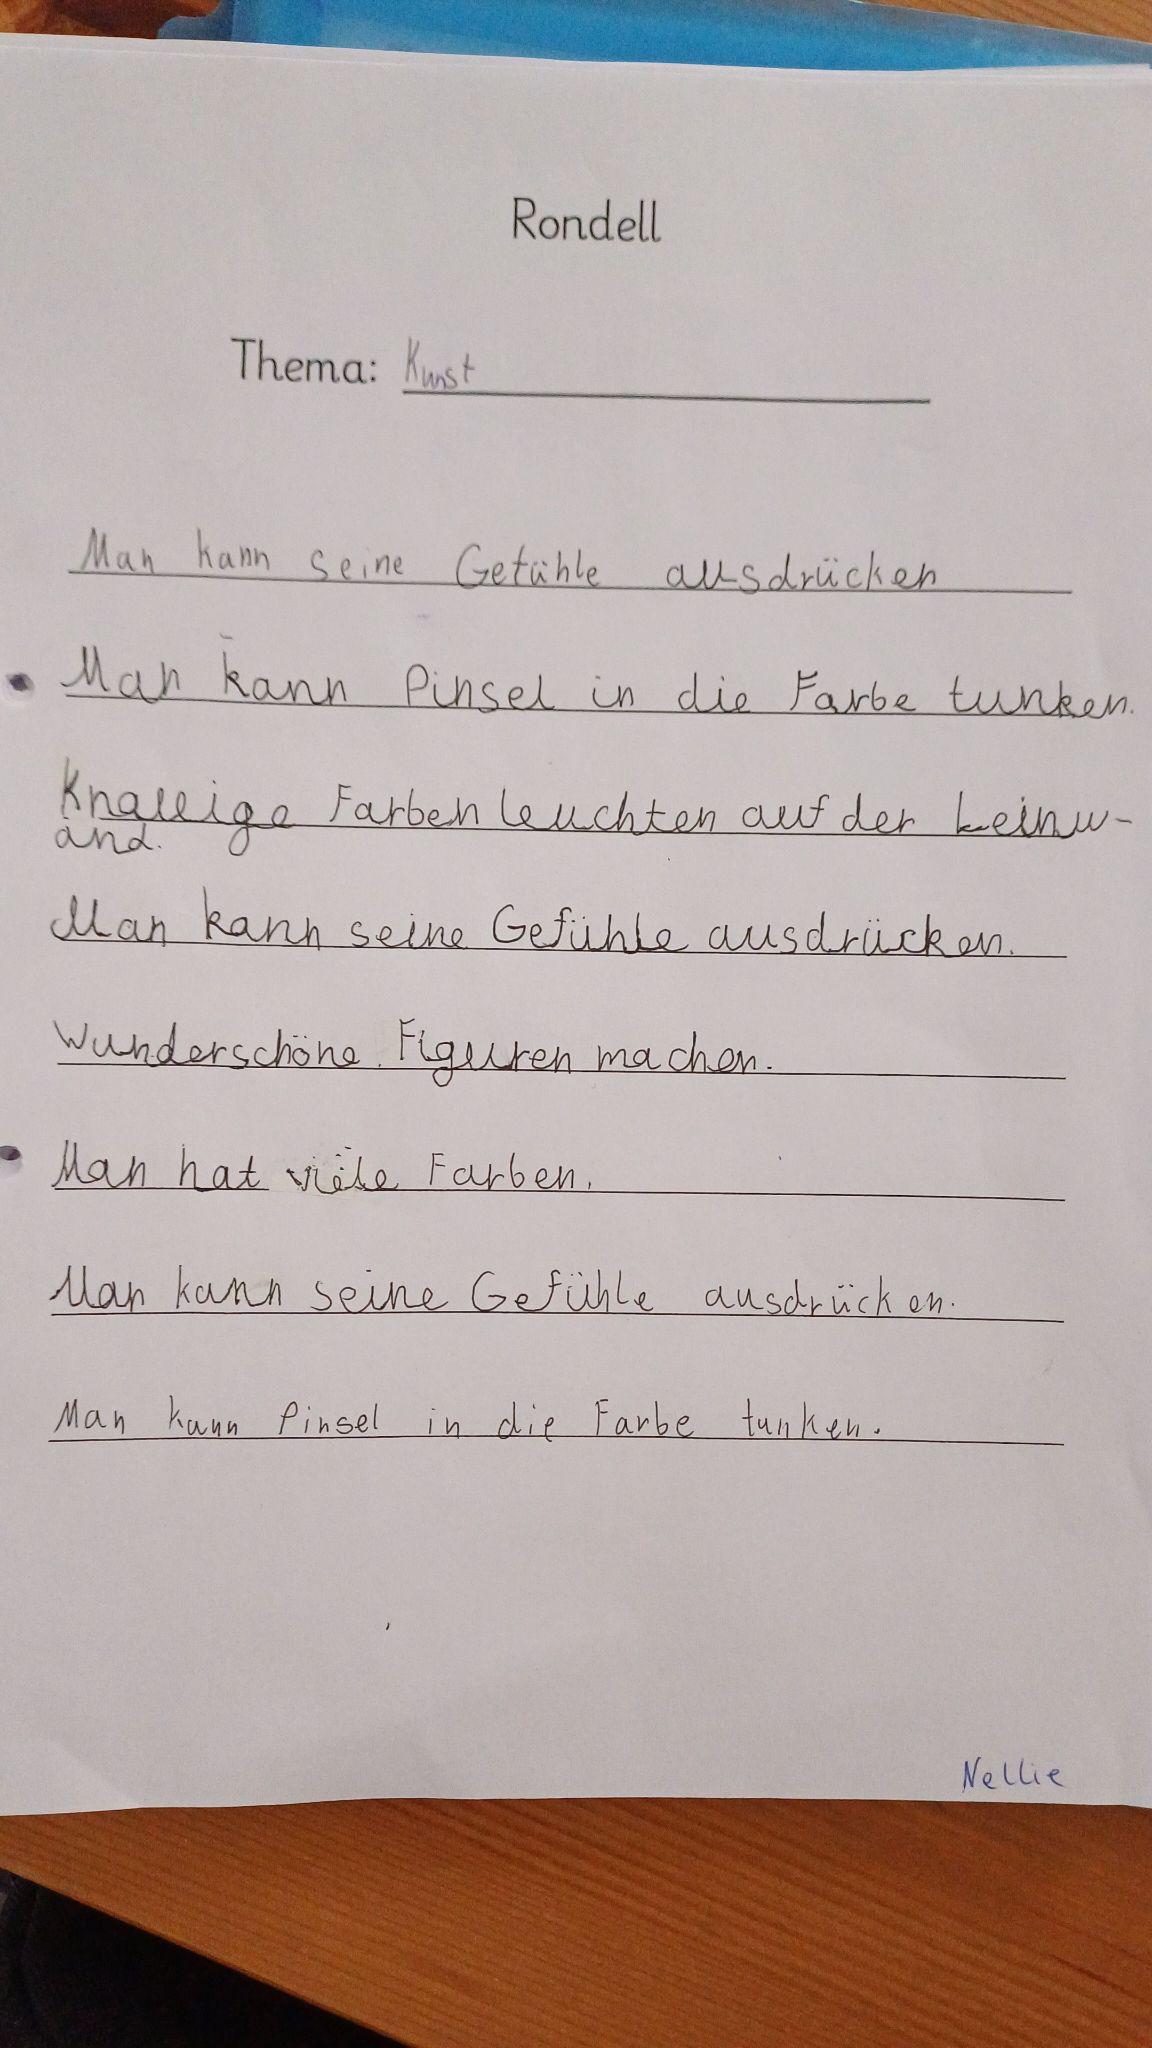 Rondell
Thema: Kunst
Man kann seine Gefühle ausdrücken
Man kann Pinsel in die Farbe tunken.
Knallige Farben leuchten auf der Leinw-
and.
Man kann seine Gefühle ausdrücken.
Wunderschöne Figuren machen.
Man hat viele Farben.
Man kann seine Gefühle ausdrücken.
Man kann Pinsel in die Farbe tunken.
Nellie